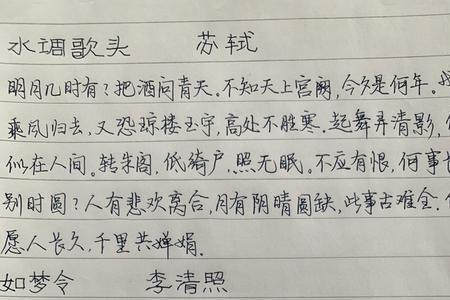 水调歌头 苏轼
明月几时有？把酒问青天。不知天上宫阙，今夕是何年。
乘风归去，又恐琼楼玉宇，高处不胜寒。起舞弄清影，
似在人间。转朱阁，低绮户，照无眠。不应有恨，何事
别时圆？人有悲欢离合，月有阴晴圆缺，此事古难全。
愿人长久，千里共婵娟。
如梦令 李清照